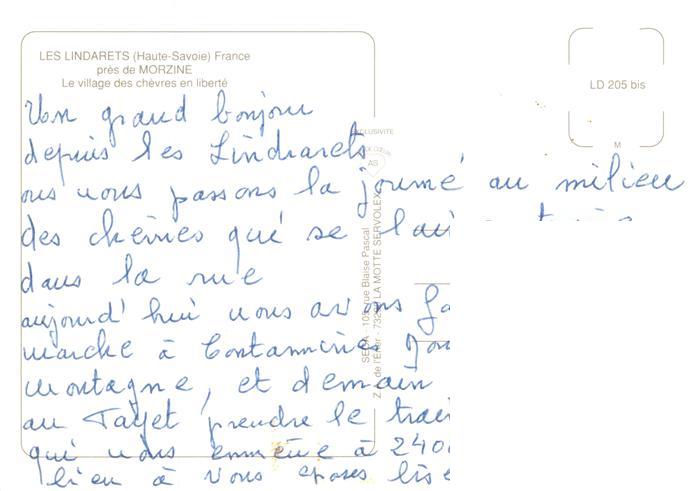 LES LINDARETS (Haute-Savoie) France
près de MORZINE
Le village des chèvres en liberté
LD 205 bis
M
EXCLUSIVITE
AS
105 rue Blaise Pascal
Z de l'Erier - LA MOTTE SERVOLEX
Un grand bonjour
depuis les Lindrarets
ous nous passons la journé au milieu
des chèvres qui se
dans la rue
aujourd'hui nous avons
marche à Contamines
montagne, et demain
au prendre le
qui nous emmène à 240
lieu à vous